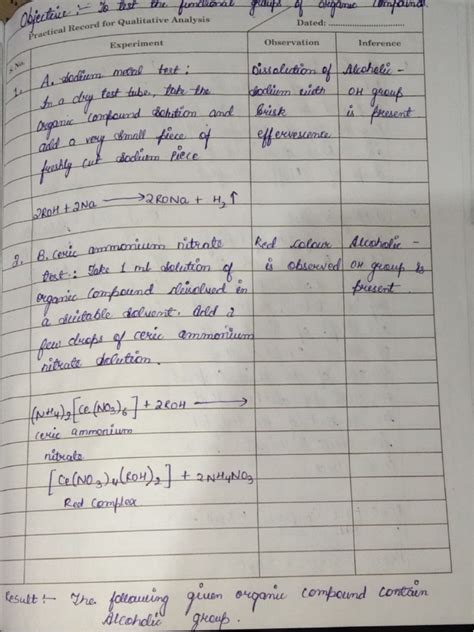 Objective :- To test the functional groups of organic compound.
Practical Record for Qualitative Analysis
Dated: ....................
S.No.
Experiment
Observation
Inference
1.
A. Sodium metal test :
In a dry test tube, take the
organic compound solution and
add a very small piece of
freshly cut sodium piece
2ROH + 2Na ⟶ 2RONa + H₂↑
Dissolution of
sodium with
brisk
effervescence
Alcoholic -
OH group
is present
2.
B. Ceric ammonium nitrate
test : Take 1 ml solution of
organic compound dissolved in
a suitable solvent. Add 2
few drops of ceric ammonium
nitrate solution.
Red colour
is observed
Alcoholic -
OH group is
present.
(NH4)2[Ce(NO3)6] + 2ROH ⟶
ceric ammonium
nitrate
[Ce(NO3)4(ROH)2] + 2NH4NO3
Red Complex
Result :- The following given organic compound contain
Alcoholic group.